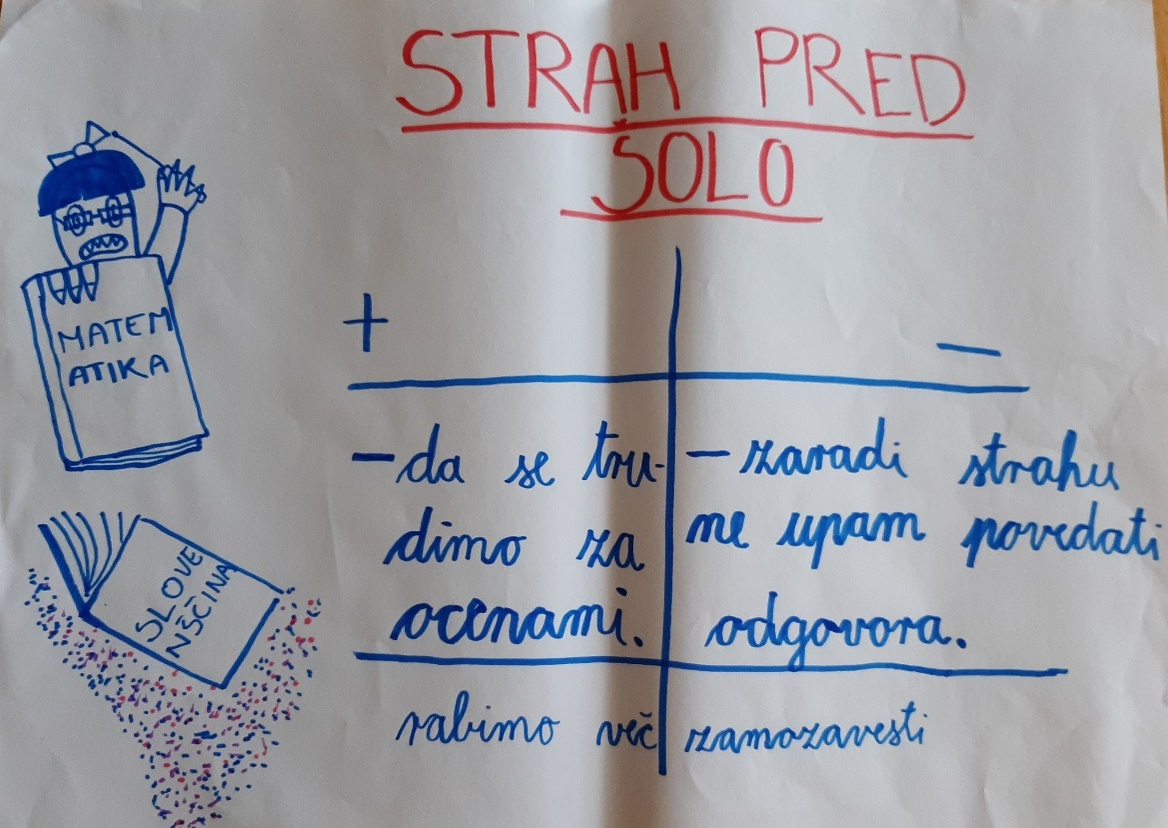 STRAH PRED
ŠOLO
MATEM
ATIKA
SLOVE
NŠČINA
+
—
- da se tru-
dimo za
ocenami.
- zaradi strahu
ne upam povedati
odgovora.
rabimo več zamozavesti